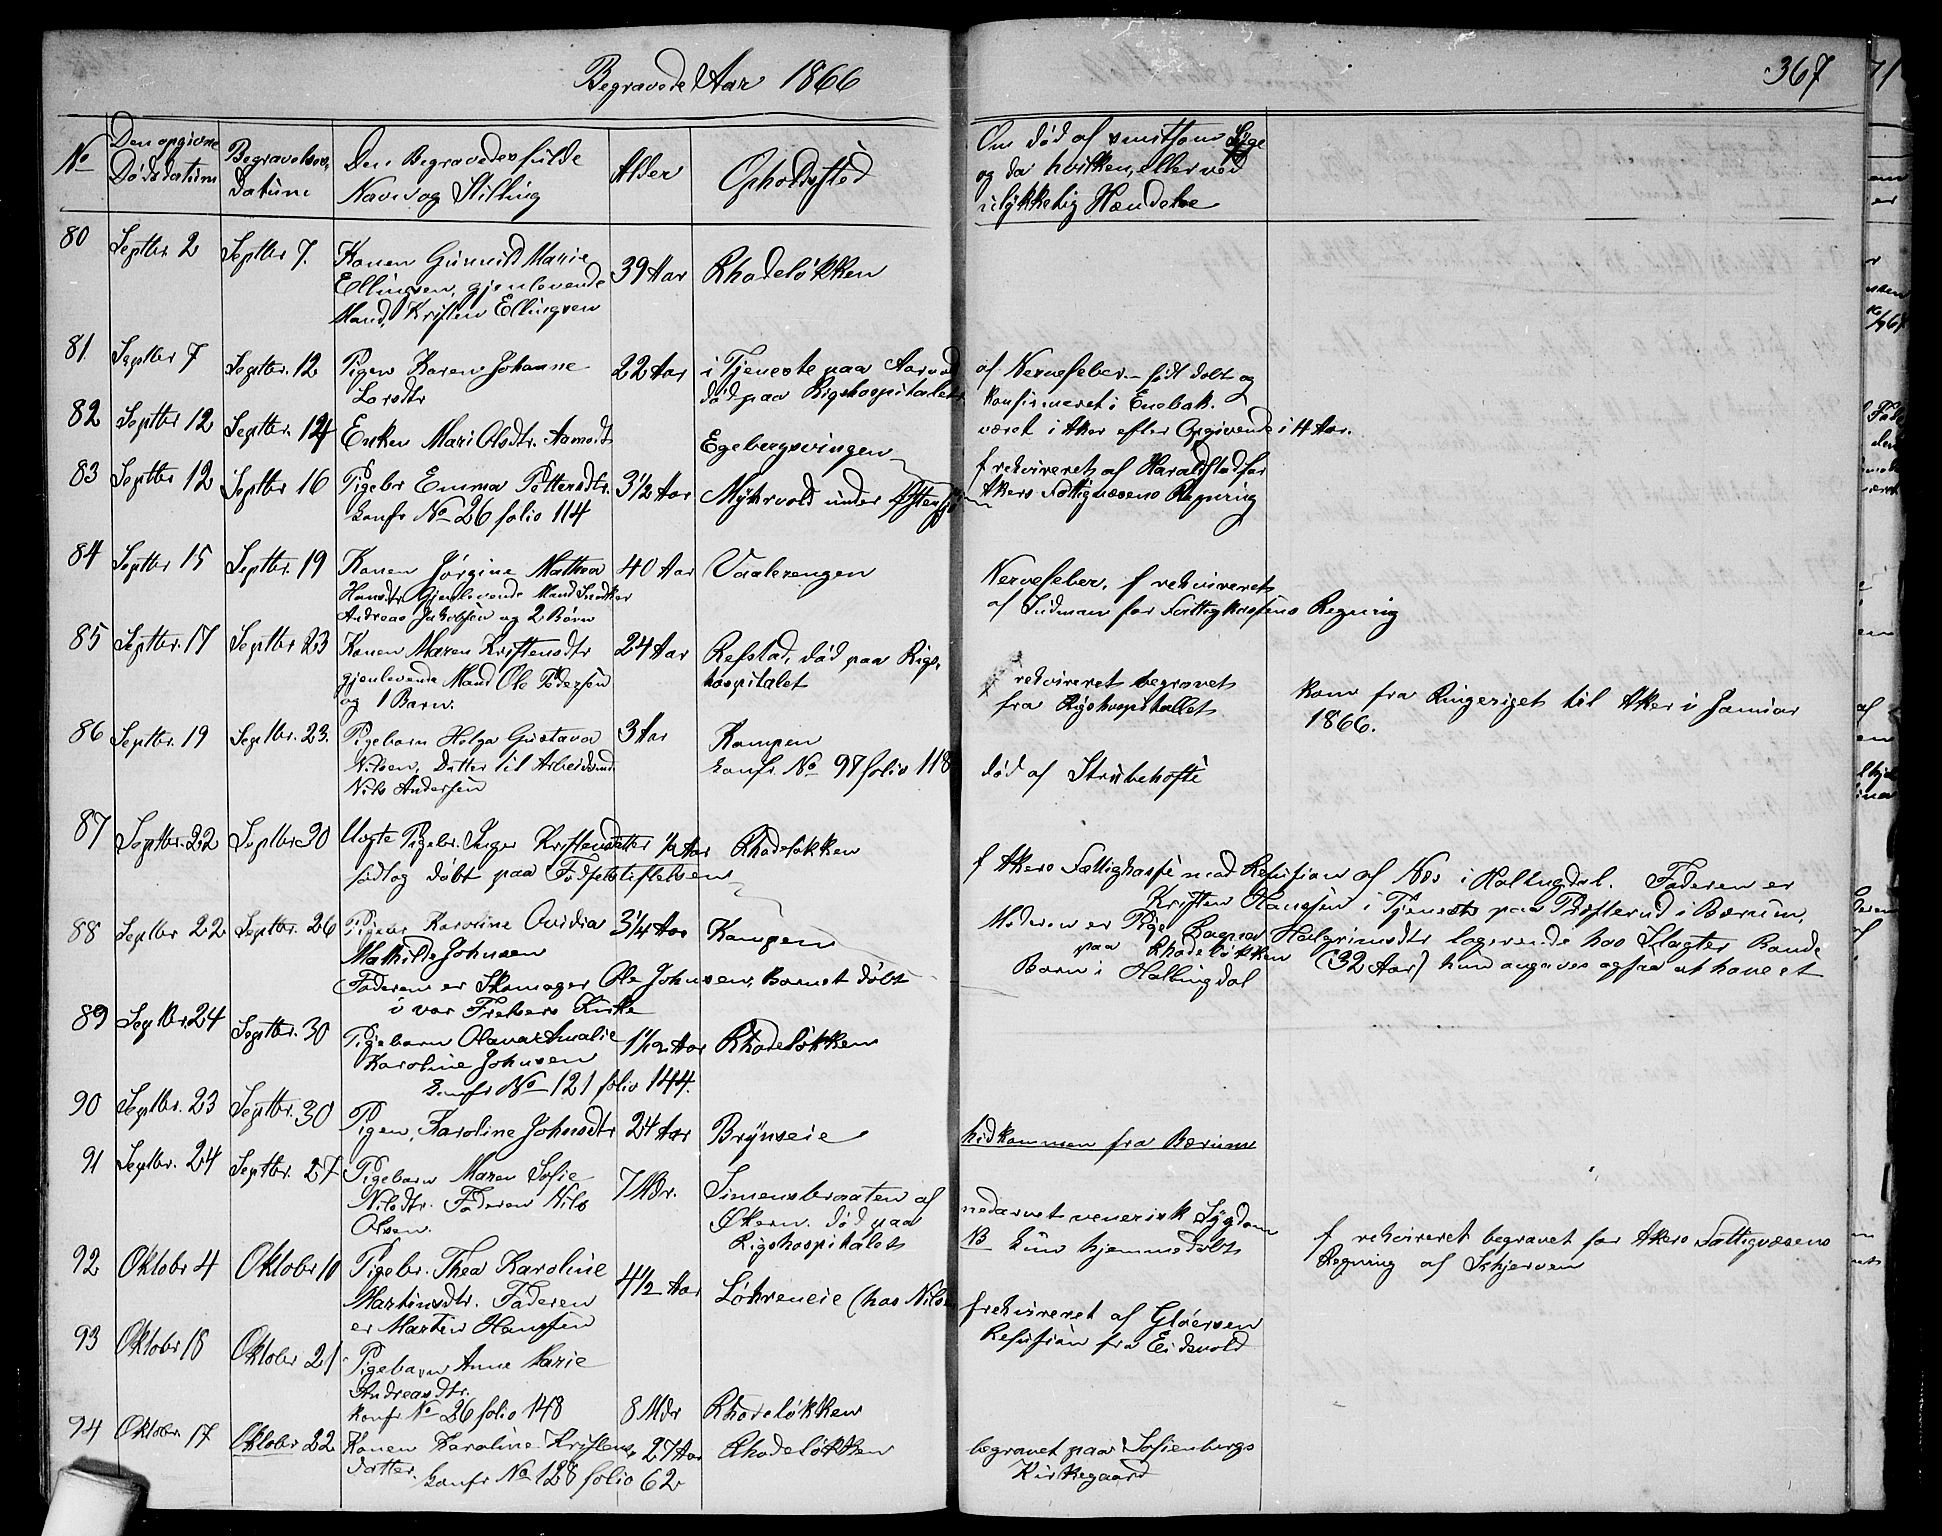 Begravede Aar 1866
367
No
Den opgivne
Dødsdatum
Begravelses
Datum
Den Begravedes fulde
Navn og Stilling
Alder
Opholdssted
Om død af smitsom Syge
og da hvilken, eller ved
ulykkelig Hændelse
80 Septbr 2 Septbr 7. Konen Gunnild Marie
Ellingsen, gjenlevende
Mand, Kristen Ellingsen
39 Aar Rhodeløkken
81. Septbr 7 Septbr. 12 Pigen Karen Johanne
Larsdtr
22 Aar i Tjeneste paa
død paa Rigshospitalet
af Nervefeber. født døbt og
konfirmeret i Enebak.
været i Aker efter Opgivende i 4 Aar.
82 Septbr 12 Septbr. 14 Enken Mari Olsdtr.
Egebergsvingen
83 Septbr 12 Septbr 16 Pigebr Emma Pettersdtr.
konfr No 26 folio 114
3 1/2 Aar Myhrvold under Østensjø
f rekvireret af Haraldstad for
Akers Fattigvæsens Regning
84 Septbr 15 Septbr. 19 Konen Jørgine Mathea
Hansdtr Gjenlevende Mand Snedker
Andreas Jakobsen og 2 Børn
40 Aar Vaalerengen
Nervefeber, f rekvireret
af Sudman for Fattigkassens Regning
85 Septbr. 17 Septbr 23 Konen Maren Kristensdtr
gjenlevende Mand Ole Pedersen
og 1 Barn.
24 Aar Refstad, død paa Rigs-
hospitalet
rekvireret begravet
fra Rigshospitallet
kom fra Ringeriget til Aker i Januar
1866.
86 Septbr. 19 Septbr. 23. Pigebarn Helga Gustava
Nilsen, Datter til Arbeidsmd
Nils Andersen
3 Aar Kampen
konfr No 97 folio 118
død af Strubehoste
87 Septbr. 22 Septbr 30 Uægte Pigebr. Inger Kristensdatter 1/2 Aar Rhodeløkken
født og døbt paa Fødselsstiftelsen
f Akers Fattigkasse mod Refusion af Næs i Hallingdal. Faderen er
Kristen Hansen i Tjeneste paa i Bærum,
Moderen er Pige Ragna Halgrimsdtr logerende hos Slagter
paa Rhodeløkken (32 Aar) hun angaves ogsaa at have et
Barn i Hallingdal
88 Septbr 22 Septbr. 26 Pigebr Karoline Ovidia
Mathilde Johnsen
3 1/4 Aar Kampen
Faderen er Skomager Ole Johnsen, Barnet døbt
i vor Frelsers Kirke
89 Septbr. 24 Septbr. 30 Pigebarn Olava Amalie
Karoline Johnsen
konfr No 121 folio 144.
1 1/12 Aar Rhodeløkken
90 Septbr. 23 Septbr. 30 Pigen, Karoline Johnsdtr 24 Aar Brynseie
hidkommen fra Bærum
91 Septbr. 24 Septbr. 27 Pigebarn Maren Sofie
Nilsdtr. Faderen Nils
Olsen.
7 Mdr. Simensbraaten af
Økern. død paa
Rigshospitalet
nedarvet venerisk Sygdom
NB kun hjemmedøbt
f rekvireret begravet for Akers Fattigvæsens
Regning af Schjerven
92 Oktober 4 Oktober 10 Pigebr. Thea Karoline
Martinsdtr. Faderen
er Martin Hansen
4 1/2 Aar Løhreneie (hos Nilsen
f rekvireret af Gløersen
Refusion fra Eidsvold
93 Oktober 18 Oktober 21 Pigebarn Anne Marie
Andreasdtr.
konfr No 26 folio 148
8 Mdr Rhodeløkken
94 Oktober 17 Oktober 22 Konen Karoline Kristens-
datter.
konfr No 128 folio 62
27 Aar Rhodeløkken
begravet paa Sofienbergs
Kirkegaard